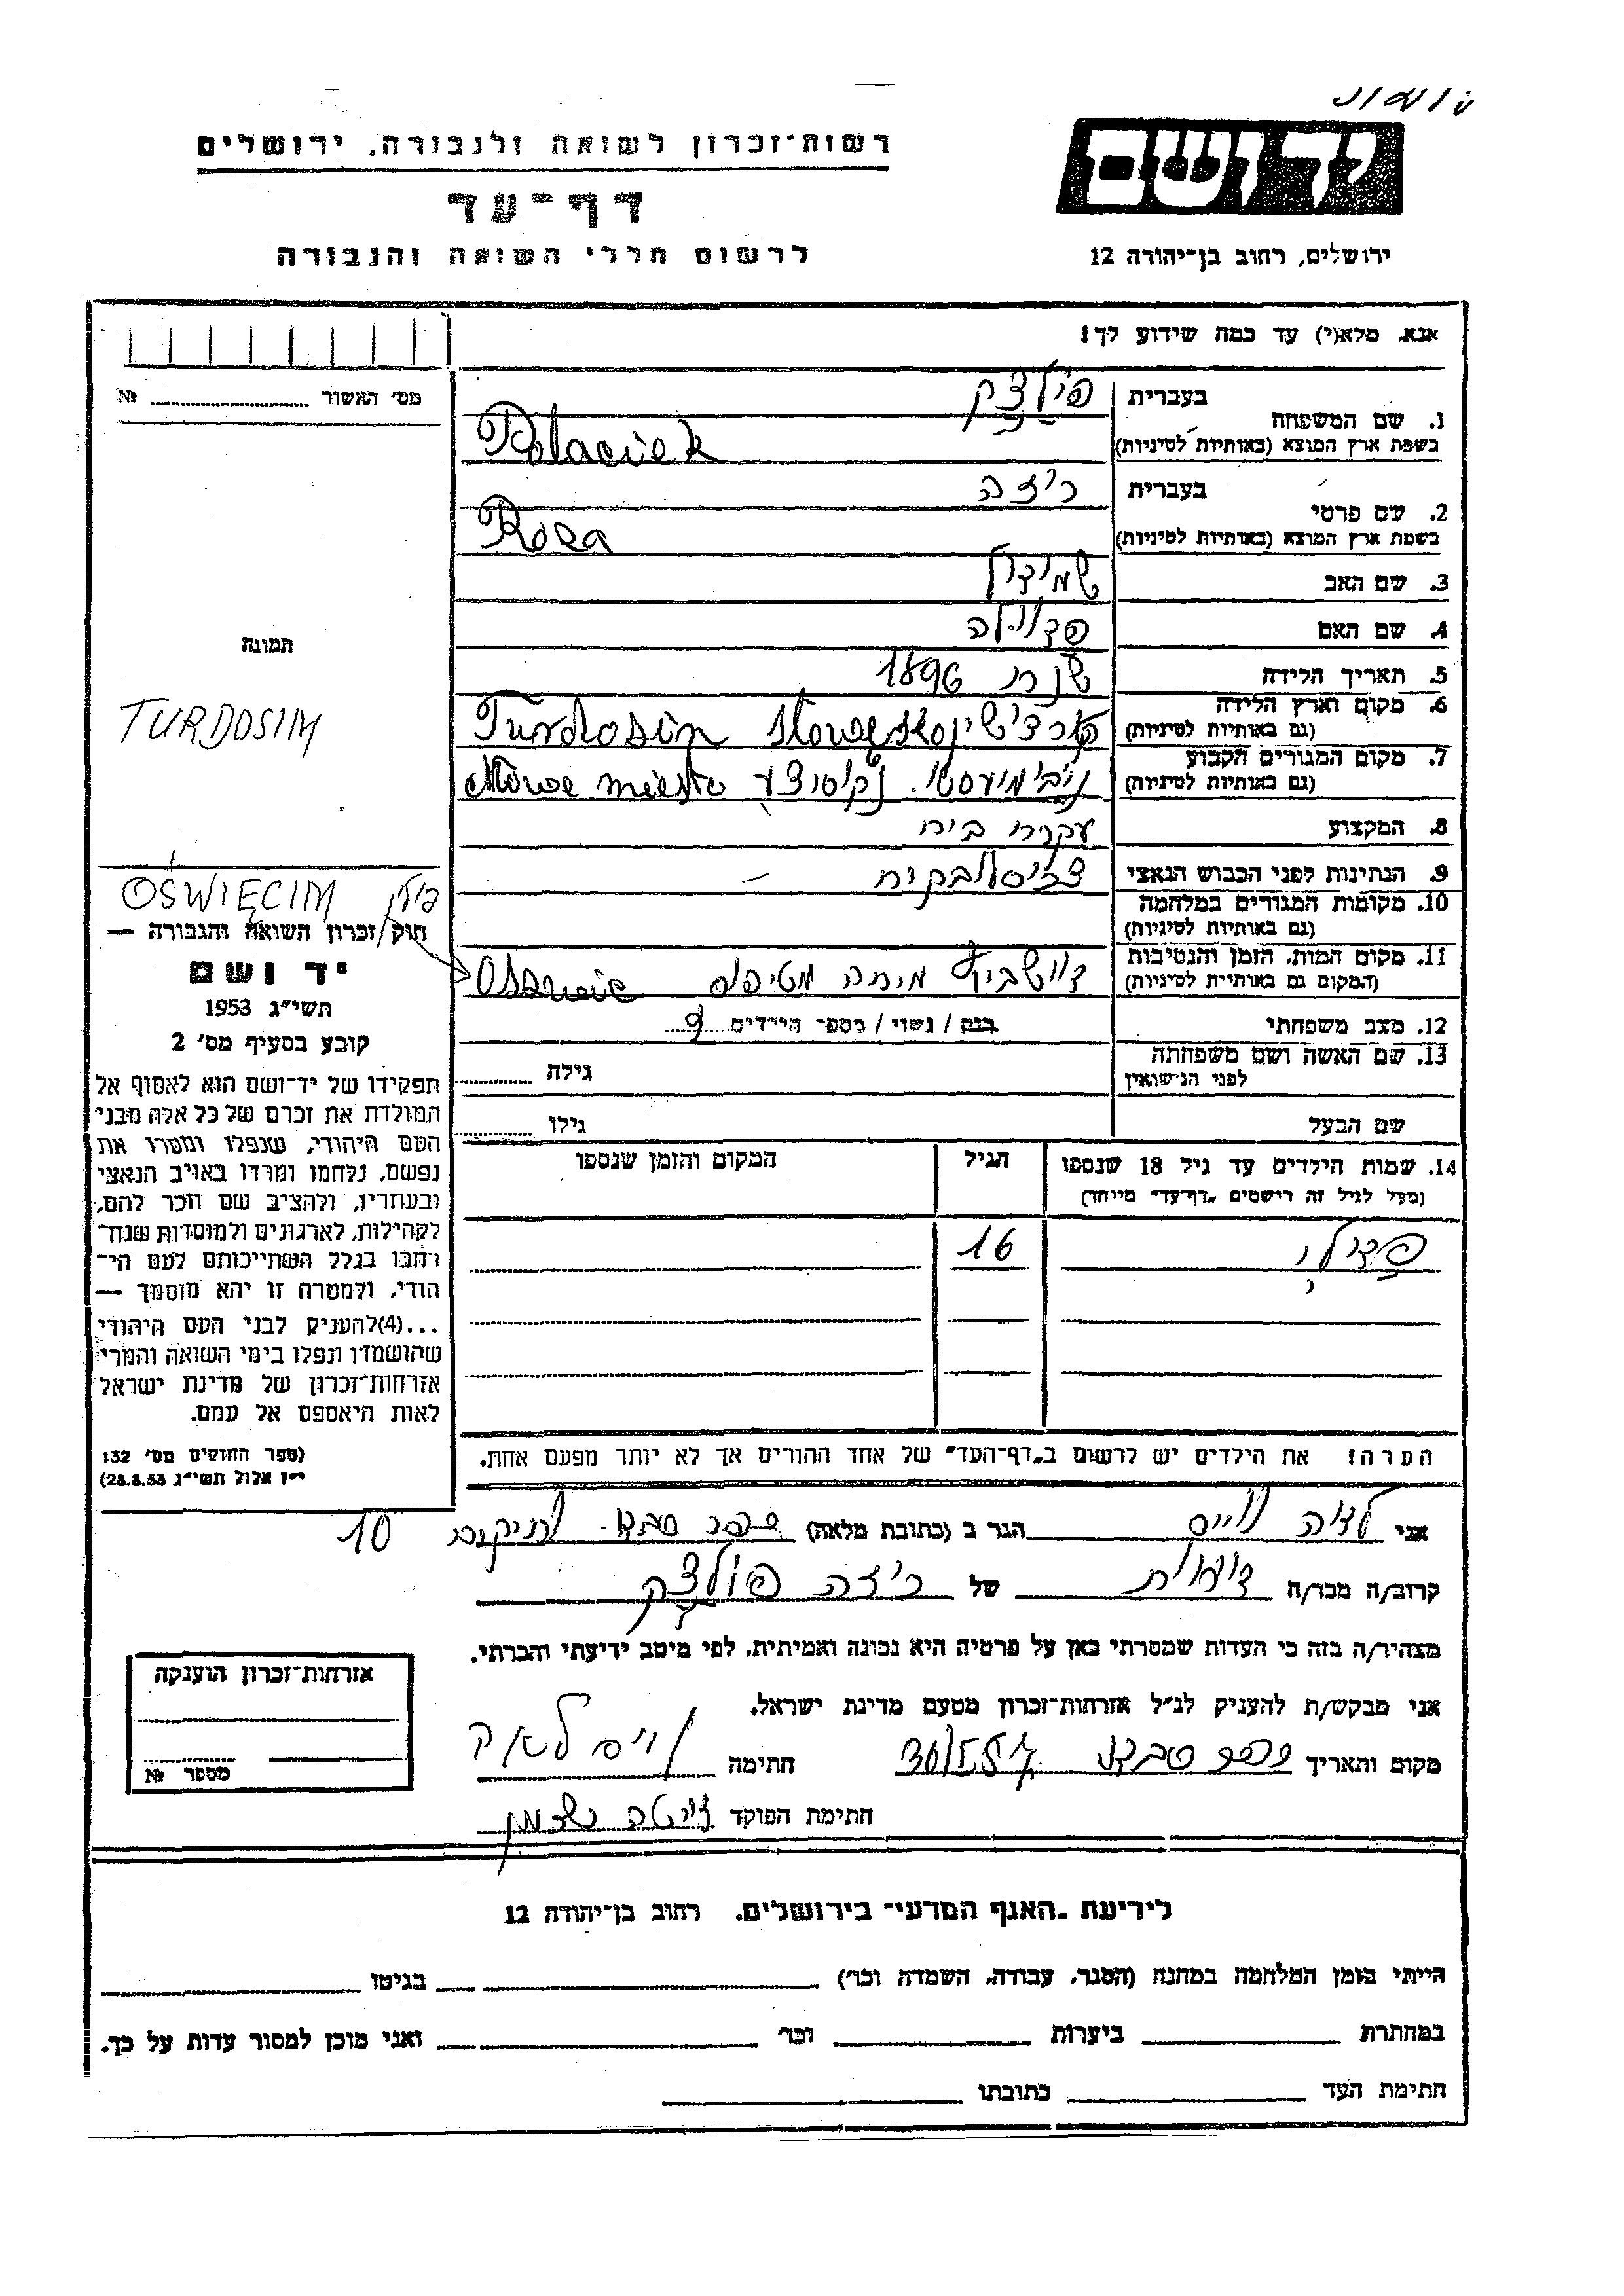 רשות־זכרון לשואה ולגבורה, ירושלים
יד ושם
דף־עד
לרשום חללי השואה והגבורה
ירושלים, רחוב בן־יהודה 12
אנא, מלא(י) עד כמה שידוע לך!
מס׳ האשור № 
1. שם המשפחה בעברית פולצק
בשפת ארץ המוצא (באותיות לטיניות) Polaciek
2. שם פרטי בעברית רוזה
בשפת ארץ המוצא (באותיות לטיניות) Roza
3. שם האב
4. שם האם
תמונה
5. תאריך הלידה שנת 1896
6. מקום וארץ הלידה (גם באותיות לטיניות) Turdosin
TURDOSIM
7. מקום המגורים הקבוע (גם באותיות לטיניות)
8. המקצוע עקרת בית
9. הנתינות לפני הכבוש הנאצי
10. מקומות המגורים במלחמה (גם באותיות לטיניות)
OŚWIĘCIM פולין
11. מקום המות, הזמן והנסיבות (המקום גם באותיות לטיניות)
12. מצב משפחתי רווק / נשוי / מספר הילדים 9
13. שם האשה ושם משפחתה לפני הנישואין גילה
שם הבעל גילו
חוק זכרון השואה והגבורה —
יד ושם
תשי״ג 1953
קובע בסעיף מס׳ 2
תפקידו של יד־ושם הוא לאסוף אל
המולדת את זכרם של כל אלה מבני
העם היהודי, שנפלו ומסרו את
נפשם, נלחמו ומרדו באויב הנאצי
ובעוזריו, ולהציב שם וזכר להם,
לקהילות, לארגונים ולמוסדות שנח־
רבו בגלל השתייכותם לעם הי־
הודי, ולמטרה זו יהא מוסמך —
...(4)להעניק לבני העם היהודי
שהושמדו ונפלו בימי השואה והמרי
אזרחות־זכרון של מדינת ישראל
לאות היאספם אל עמם.
(ספר החוקים מס׳ 132
י״ז אלול תשי״ג 28.8.53)
14. שמות הילדים עד גיל 18 שנספו הגיל המקום והזמן שנספו
(מעל לגיל זה רושמים „דף־עד״ מיוחד)
16
הערה! את הילדים יש לרשום ב„דף־העד״ של אחד ההורים אך לא יותר מפעם אחת.
אני לאה ווייס הגר ב (כתובת מלאה) כפר סבא 10
קרוב/ה מכר/ה של רוזה פולצק
מצהיר/ה בזה כי העדות שמסרתי כאן על פרטיה היא נכונה ואמיתית, לפי מיטב ידיעתי והכרתי.
אני מבקש/ת להעניק לנ״ל אזרחות־זכרון מטעם מדינת ישראל.
מקום ותאריך כפר סבא חתימה וייס לאה
חתימת הפוקד
אזרחות־זכרון הוענקה
מספר №
לידיעת „האגף המדעי״ בירושלים, רחוב בן־יהודה 12
הייתי בזמן המלחמה במחנה (הסגר, עבודה, השמדה וכו׳) בגיטו
במחתרת ביערות וכו׳ ואני מוכן למסור עדות על כך.
חתימת העד כתובתו